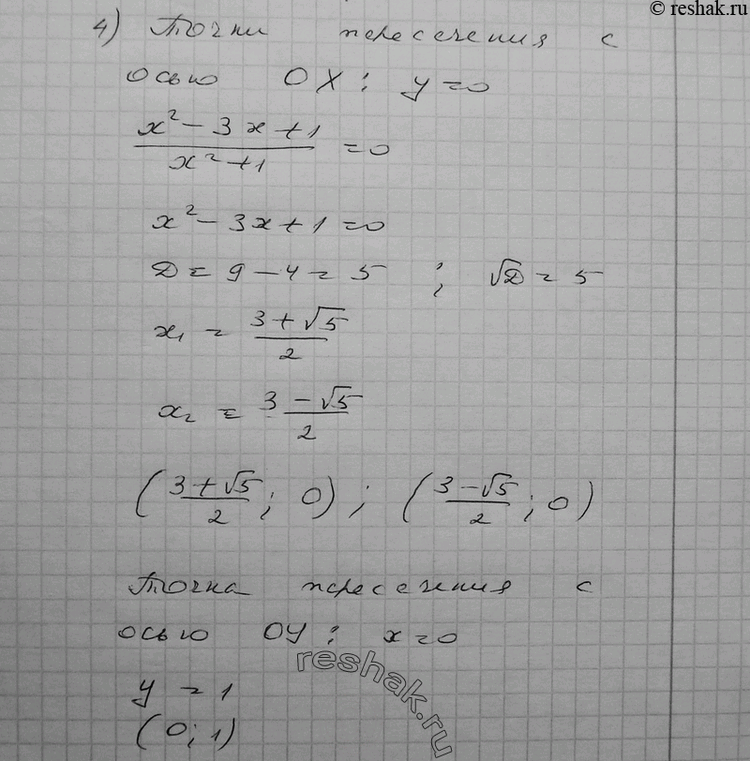 © reshak.ru
4) Точки пересечения с
осью OX: y=0
(x²-3x+1)/(x²+1) =0
x²-3x+1=0
D=9-4=5 ; √D=5
x₁ = (3+√5)/2
x₂ = (3-√5)/2
((3+√5)/2; 0); ((3-√5)/2; 0)
Точка пересечения с
осью OY: x=0
y=1
(0;1)
reshak.ru